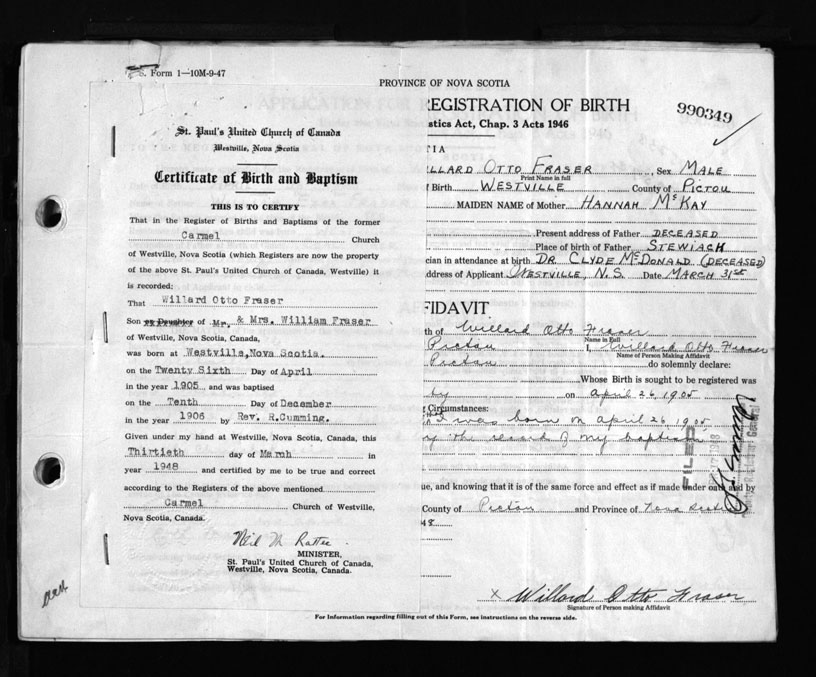 Form 1—10M-9-47
St. Paul's United Church of Canada
Westville, Nova Scotia
Certificate of Birth and Baptism
THIS IS TO CERTIFY
That in the Register of Births and Baptisms of the former
Carmel Church
of Westville, Nova Scotia (which Registers are now the property
of the above St. Paul's United Church of Canada, Westville) it
is recorded:
That Willard Otto Fraser
Son or Daughter of Mr. & Mrs. William Fraser
of Westville, Nova Scotia, Canada,
was born at Westville,Nova Scotia.
on the Twenty Sixth Day of April
in the year 1905 and was baptised
on the Tenth Day of December
in the year 1906 by Rev. R.Cumming.
Given under my hand at Westville, Nova Scotia, Canada, this
Thirtieth day of March in
year 1948 and certified by me to be true and correct
according to the Registers of the above mentioned
Carmel Church of Westville,
Nova Scotia, Canada.
Neil M Rattee
MINISTER,
St. Paul's United Church of Canada,
Westville, Nova Scotia, Canada.
PROVINCE OF NOVA SCOTIA
REGISTRATION OF BIRTH
990349
stics Act, Chap. 3 Acts 1946
TIA
ILLARD OTTO FRASER, Sex MALE
Print Name in full
f Birth WESTVILLE County of PICTOU
MAIDEN NAME of Mother HANNAH McKAY
Present address of Father DECEASED
Place of birth of Father STEWIACH
cian in attendance at birth DR CLYDE McDONALD (DECEASED)
ddress of Applicant WESTVILLE, N.S. Date MARCH 31st
FFIDAVIT
th of Willard Otto Fraser
Name in Full
Pictou I, Willard Otto Fraser
Name of Person Making Affidavit
Pictou do solemnly declare:
Whose Birth is sought to be registered was
by on April 26, 1905
g Circumstances:
I was born on April 26, 1905
by the record of my baptism
FILED
ue, and knowing that it is of the same force and effect as if made under oath and by
County of Pictou and Province of Nova Scotia
48
x Willard Otto Fraser
Signature of Person making Affidavit
For Information regarding filling out of this Form, see instructions on the reverse side.